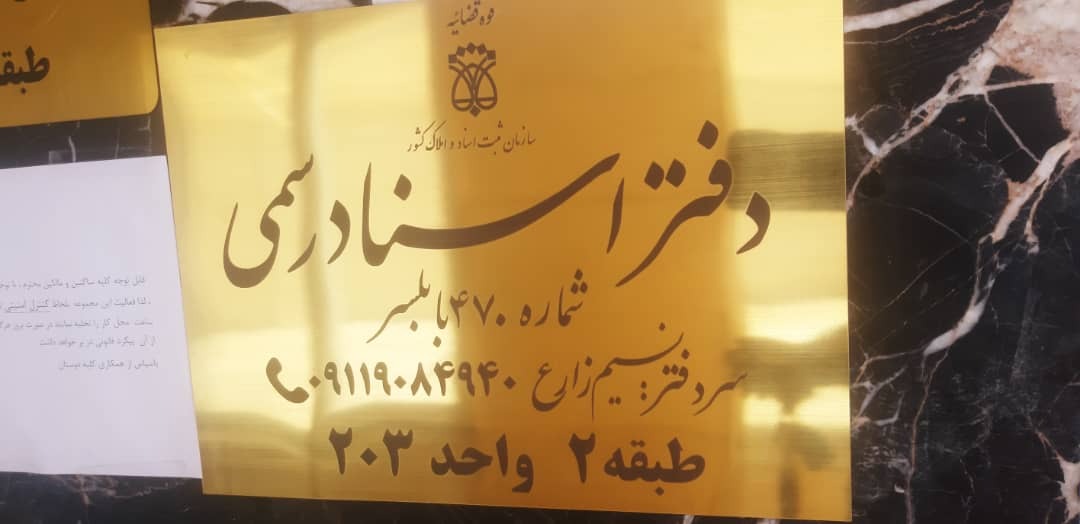 قوه قضائیه
سازمان ثبت اسناد و املاک کشور
دفتر اسناد رسمی
شماره ۴۷۰ بابلسر
سردفتر: نسیم زارع ۰۹۱۱۹۰۸۴۹۴۰
طبقه ۲ واحد ۲۰۳
قابل توجه کلیه ساکنین و مالکین محترم ، با
، لذا فعالیت این مجموعه بلحاظ کنترل امنیتی
ساعت محل کار را تخلیه نمایند در صورت بروز
از آن پیگرد قانونی در بر خواهد داشت
باسپاس از همکاری کلیه دوستان